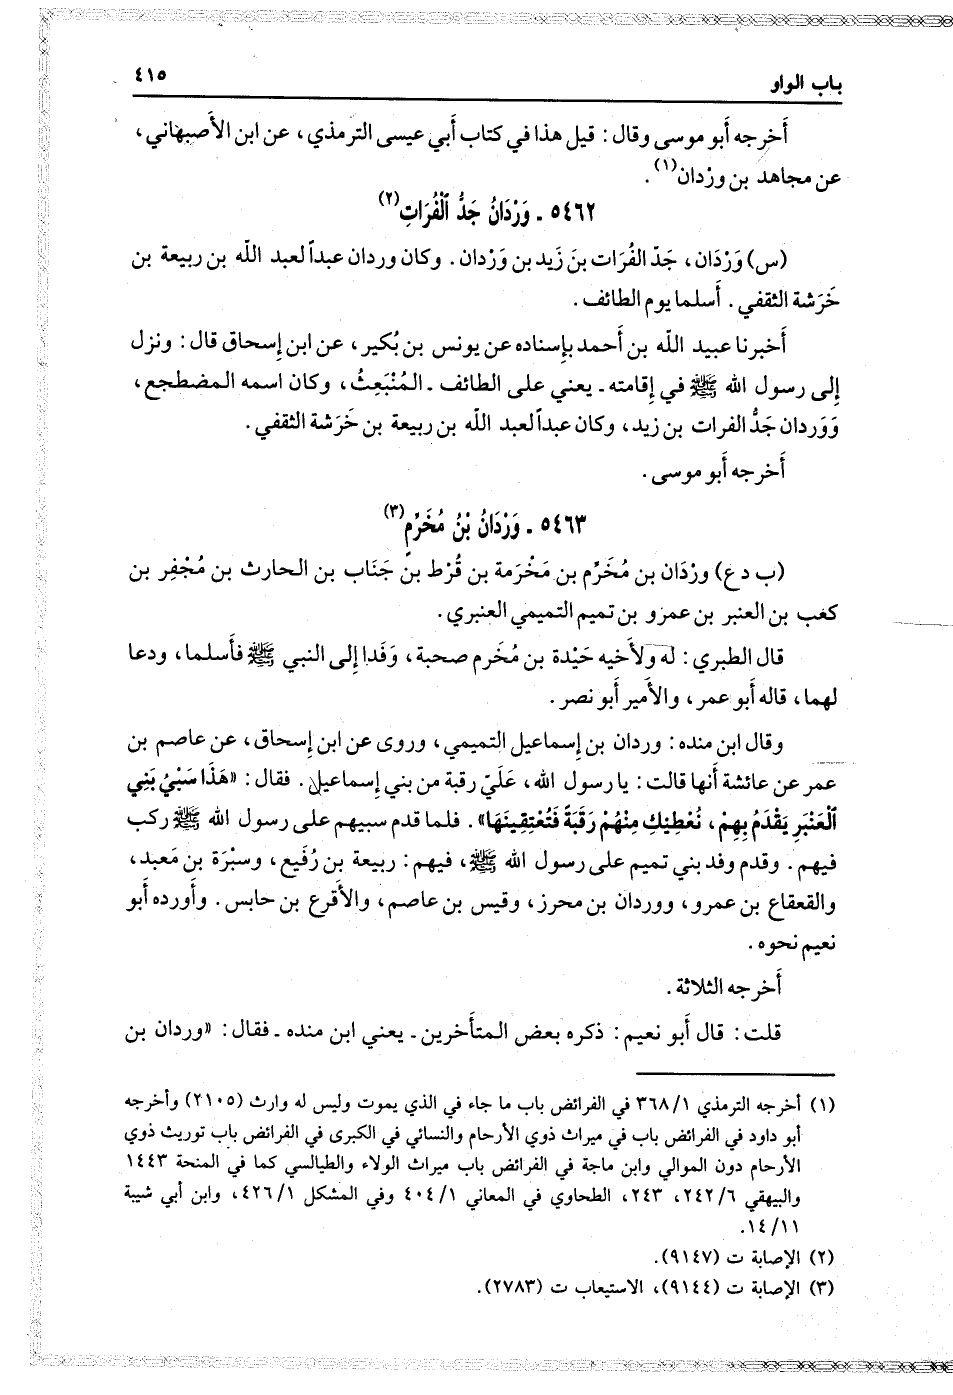 باب الواو ٤١٥
أخرجه أبو موسى وقال: قيل هذا في كتاب أبي عيسى الترمذي، عن ابن الأصبهاني،
عن مجاهد بن ورْدان(١).
٥٤٦٢ ـ وَرْدَانُ جَدُّ ٱلْفُرَاتِ(٢)
(س) وَرْدَان، جَدّ الفُرَات بن زَيد بن وَرْدان. وكان وردان عبداً لعبد اللّه بن ربيعة بن
خَرَشة الثقفي. أسلما يوم الطائف.
أخبرنا عبيد اللّه بن أحمد بإسناده عن يونس بن بُكير، عن ابن إسحاق قال: ونزل
إلى رسول اللّه ﷺ في إقامته ـ يعني على الطائف ـ المُنْبَعِثُ، وكان اسمه المضطجع،
وَوَردان جَدُّ الفرات بن زيد، وكان عبداً لعبد اللّه بن ربيعة بن خَرَشة الثقفي.
أخرجه أبو موسى.
٥٤٦٣ ـ وَرْدَانُ بْنُ مُخَرِّمٍ(٣)
(ب د ع) ورْدَان بن مُخَرِّم بن مَخْرَمة بن قُرْط بن جَنَاب بن الحارث بن مُجْفِر بن
كعْب بن العنبر بن عمرو بن تميم التميمي العنبري.
قال الطبري: له ولأخيه حَيْدة بن مُخَرم صحبة، وَفَدا إلى النبي ﷺ فأسلما، ودعا
لهما، قاله أبو عمر، والأمير أبو نصر.
وقال ابن منده: وردان بن إسماعيل التميمي، وروى عن ابن إسحاق، عن عاصم بن
عمر عن عائشة أنها قالت: يا رسول اللّه، عَلَيّ رقبة من بني إسماعيل. فقال: «هَذَا سَبْيُ بَنِي
ٱلْعَنْبَرِ يَقْدَمُ بِهِمْ، نُعْطِيْكِ مِنْهُمْ رَقَبَةً فَتُعْتِقِينَهَا». فلما قدم سبيهم على رسول اللّه ﷺ ركب
فيهم. وقدم وفد بني تميم على رسول اللّه ﷺ، فيهم: ربيعة بن رُفَيع، وسبْرَة بن مَعبد،
والقعقاع بن عمرو، ووردان بن محرز، وقيس بن عاصم، والأقرع بن حابس. وأورده أبو
نعيم نحوه.
أخرجه الثلاثة.
قلت: قال أبو نعيم: ذكره بعض المتأخرين ـ يعني ابن منده ـ فقال: «وردان بن
(١) أخرجه الترمذي ٣٦٨/١ في الفرائض باب ما جاء في الذي يموت وليس له وارث (٢١٠٥) وأخرجه
أبو داود في الفرائض باب في ميراث ذوي الأرحام والنسائي في الكبرى في الفرائض باب توريث ذوي
الأرحام دون الموالي وابن ماجة في الفرائض باب ميراث الولاء والطيالسي كما في المنحة ١٤٤٣
والبيهقي ٢٤٢/٦، ٢٤٣، الطحاوي في المعاني ٤٠٤/١ وفي المشكل ٤٢٦/١، وابن أبي شيبة
١٤/١١.
(٢) الإصابة ت (٩١٤٧).
(٣) الإصابة ت (٩١٤٤)، الاستيعاب ت (٢٧٨٣).